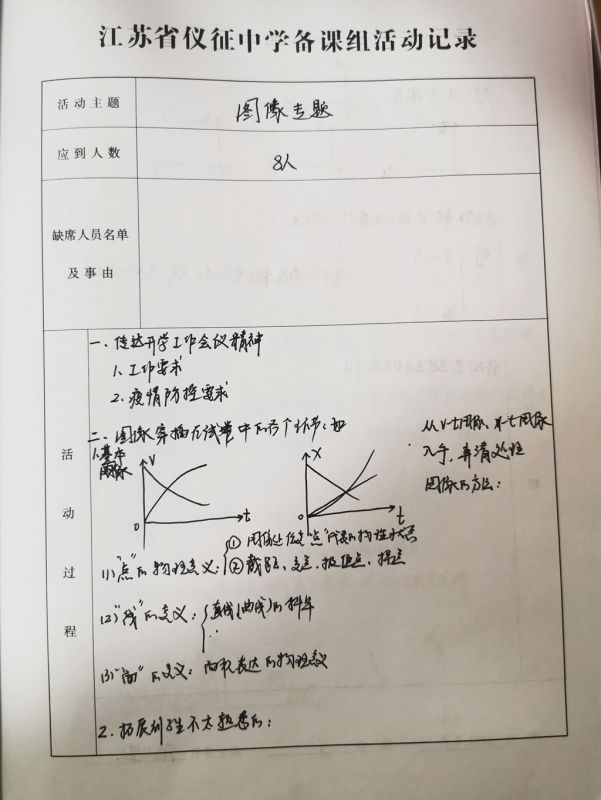 江苏省仪征中学备课组活动记录
活动主题
图像专题
应到人数
8人
缺席人员名单
及事由
活动过程
一、传达开学工作会议精神
1、工作要求
2、疫情防控要求
二、图像穿插在试卷中的各个环节:如
1、基本
图像
V
t
0
X
t
0
从V-t图像、x-t图像
入手,弄清处理
图像的方法:
(1)"点"的物理意义:
①图像上任意"点"代表的物理状态
②截距、交点、极值点、拐点
(2)"线"的意义:直线(曲线)的斜率
(3)"面"的意义:面积表达的物理意义
2、拓展到学生不太熟悉的: